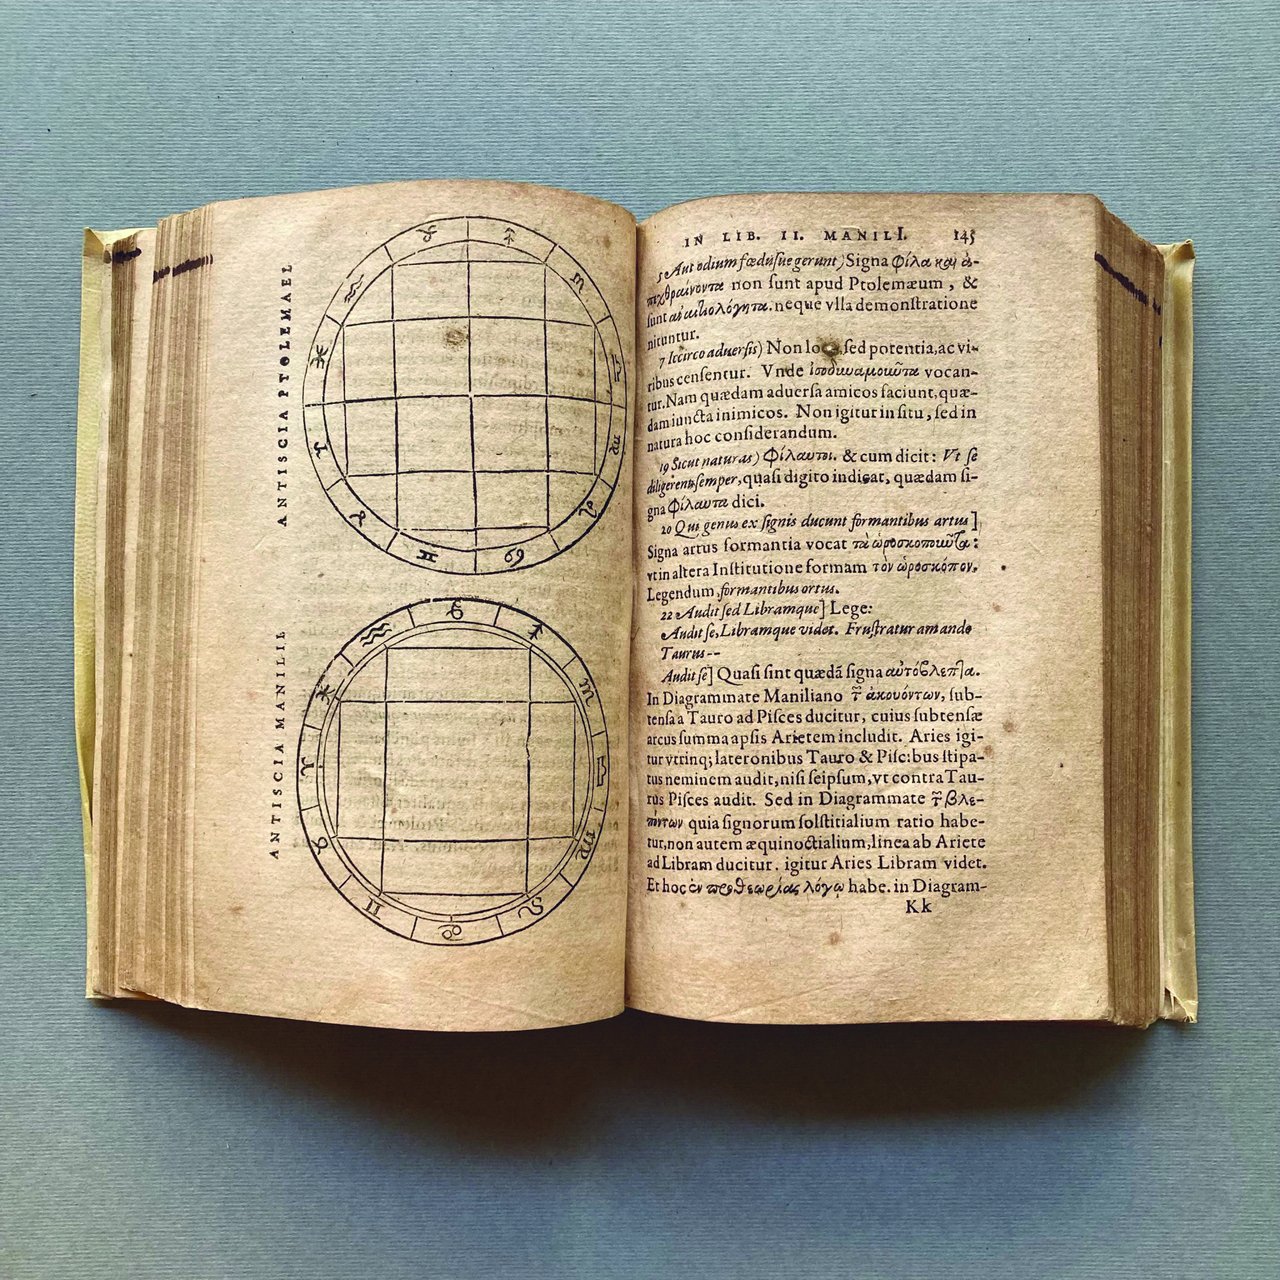 ANTISCIA PTOLEMAEI
ANTISCIA MANILII
IN LIB. II. MANILI. 145
5 Aut odium fœdúſue gerunt) Signa φίλα καὶ ἀ-
πεχθραίνοντα non ſunt apud Ptolemæum, &
ſunt ἀναιτιολόγητα. neque vlla demonſtratione
nituntur.
7 Iccirco aduerſis) Non lo ſed potentia, ac vi-
ribus cenſentur. Vnde ἰσοδυναμοῦτα vocan-
tur. Nam quædam aduerſa amicos faciunt, quæ-
dam iuncta inimicos. Non igitur in ſitu, ſed in
natura hoc conſiderandum.
19 Sicut naturas) Φίλαυτοι. & cum dicit: Vt ſe
diligerent ſemper, quaſi digito indicat, quædam ſi-
gna Φίλαυτα dici.
20 Qui genus ex ſignis ducunt formantibus artus]
Signa artus formantia vocat τὰ ὡροσκοποῦτα:
vt in altera Inſtitutione formam τὸν ὡροσκόπον.
Legendum, formantibus ortus.
22 Audit ſed Libramque] Lege:
Audit ſe, Libramque videt. Fruſtratur amando
Taurus--
Audit ſe] Quaſi ſint quædã ſigna αὐτόβλεπτα.
In Diagrammate Maniliano τ̃ ἀκουόντων, ſub-
tenſa a Tauro ad Piſces ducitur, cuius ſubtenſæ
arcus ſumma apſis Arietem includit. Aries igi-
tur vtrinq; lateronibus Tauro & Piſc:bus ſtipa-
tus neminem audit, niſi ſeipſum, vt contra Tau-
rus Piſces audit. Sed in Diagrammate τ̃ βλε-
πόντων quia ſignorum ſolſtitialium ratio habe-
tur, non autem æquinoctialium, linea ab Ariete
ad Libram ducitur. igitur Aries Libram videt.
Et hoc ἐν προθεωρίας λόγῳ habe. in Diagram-
Kk